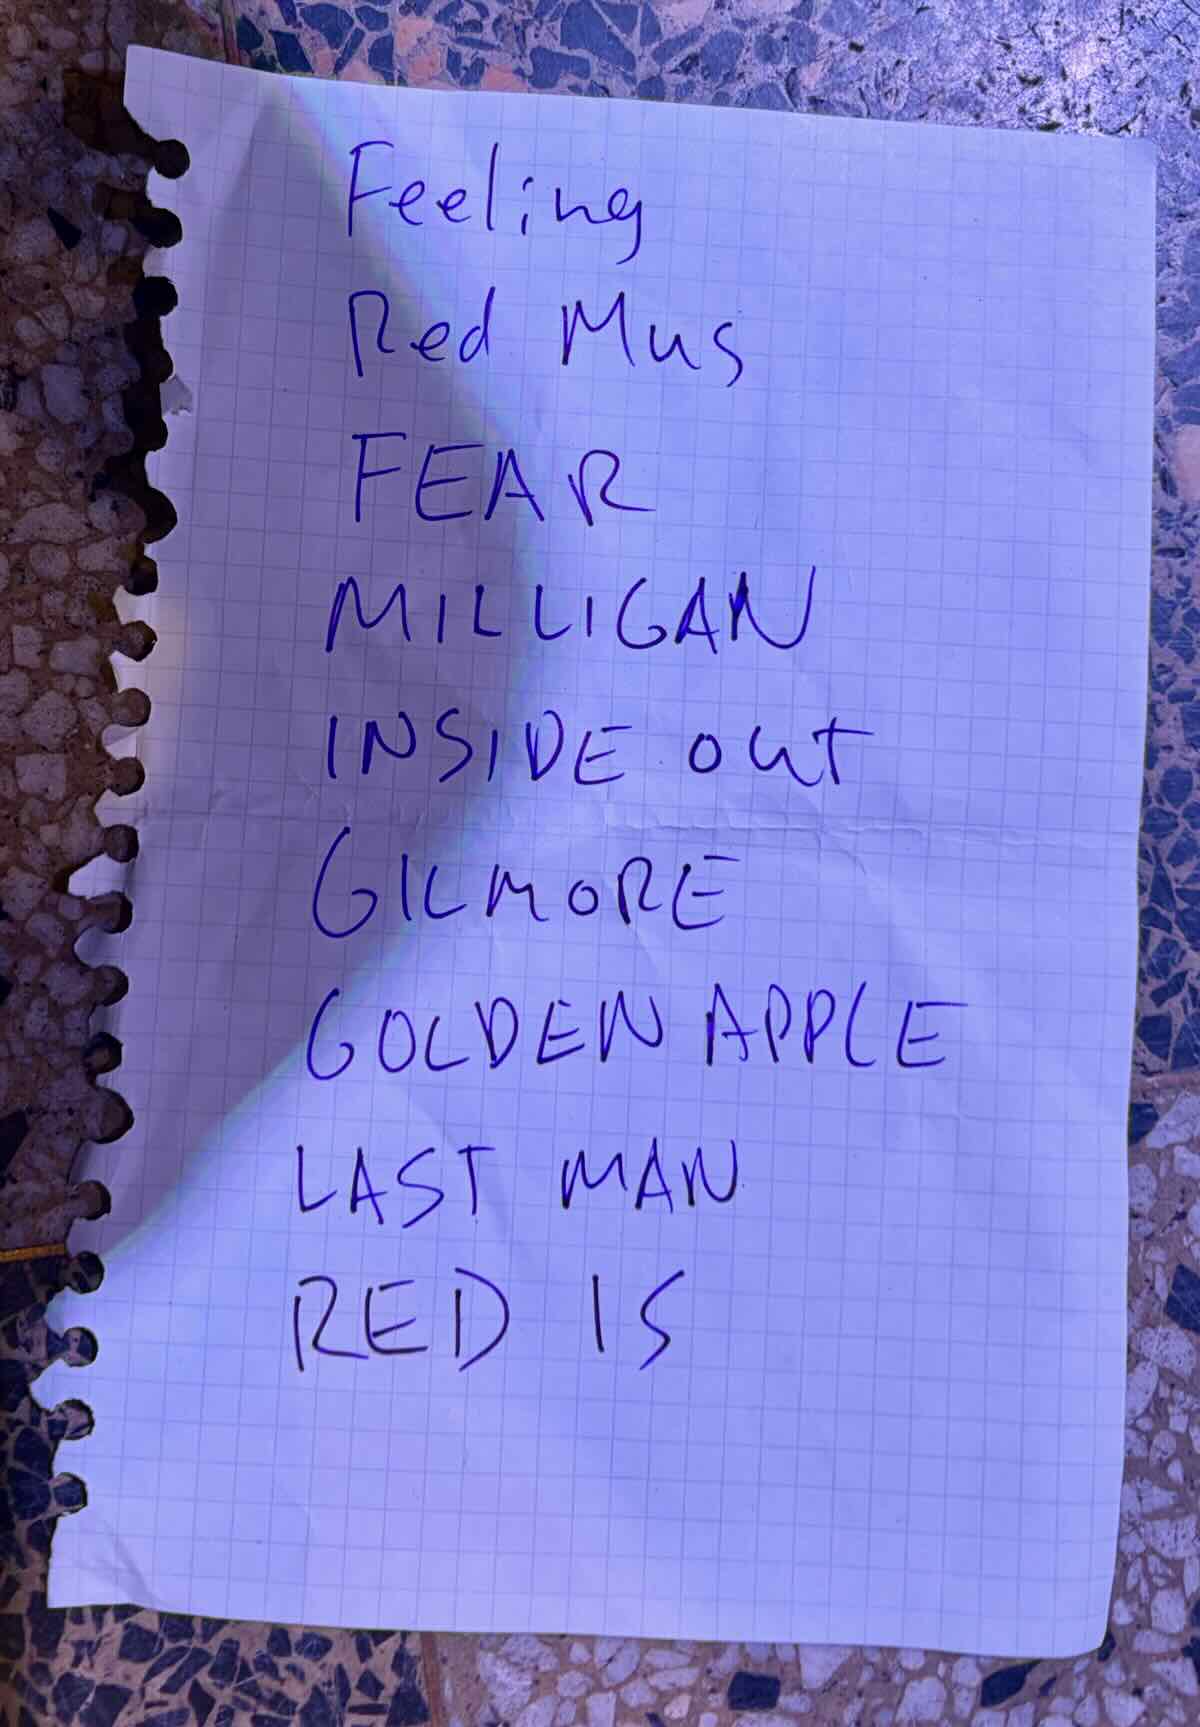 Feeling
Red Mus
FEAR
MILLIGAN
INSIDE OUT
GILMORE
GOLDEN APPLE
LAST MAN
RED IS